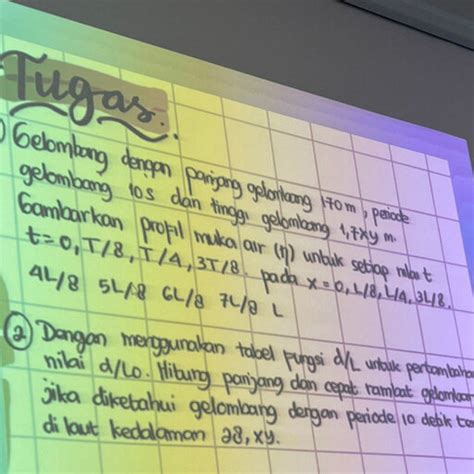 Tugas..
) Gelombang dengan panjang gelombang 170 m, periode
gelombang 10s dan tinggi gelombang 1,7xy m.
Gambarkan profil muka air (η) untuk setiap nilai t
t=0, T/8, T/4, 3T/8. pada x = 0, L/8, L/4, 3L/8,
4L/8 5L/8 6L/8 7L/8 L
② Dengan menggunakan tabel fungsi d/L untuk pertambaha
nilai d/Lo. Hitung panjang dan cepat rambat gelomban
jika diketahui gelombang dengan periode 10 detik te
di laut kedalaman 28,xy.